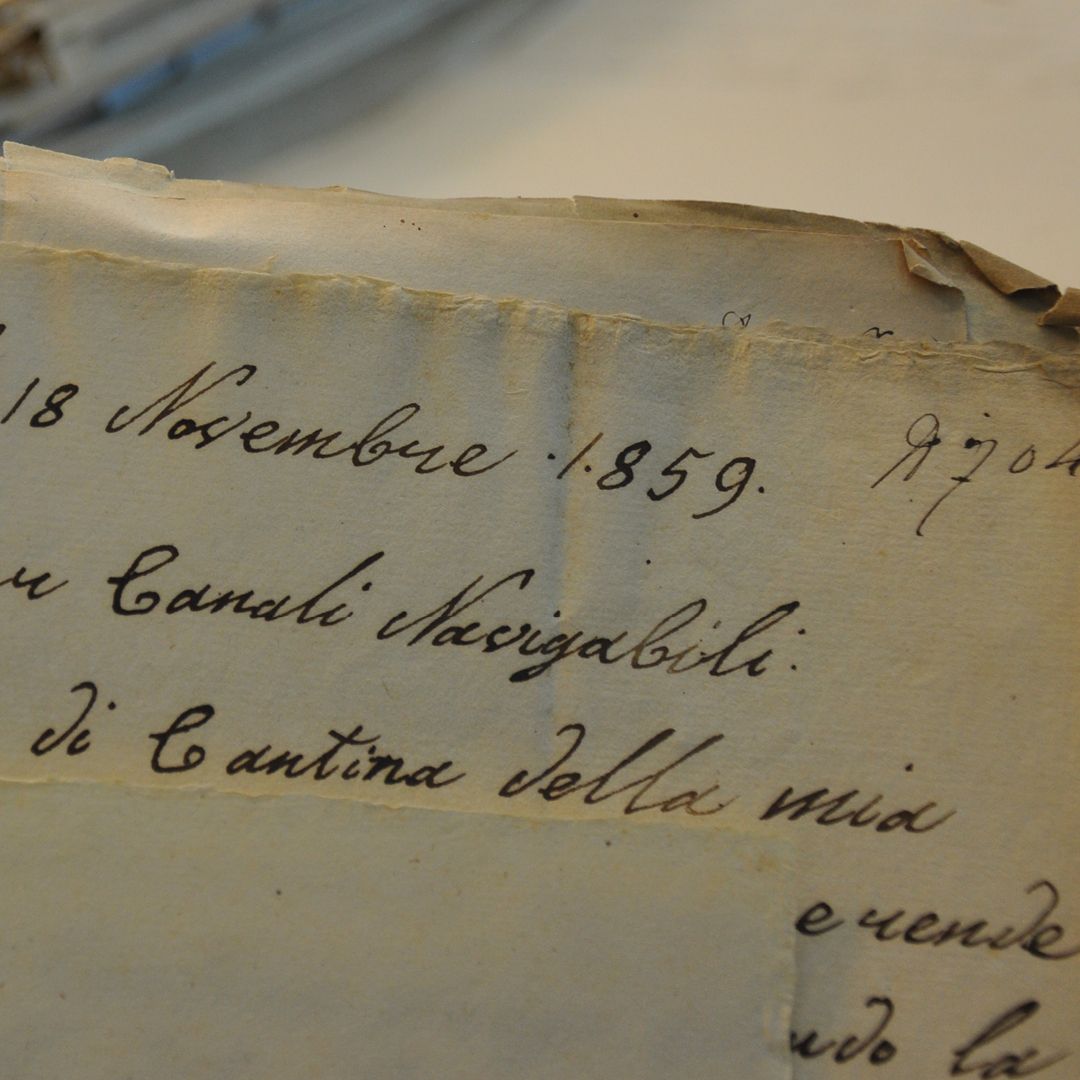 18 Novembre .1.859. N 704
Canali Navigabili.
di Cantina della mia
erende
ndo la